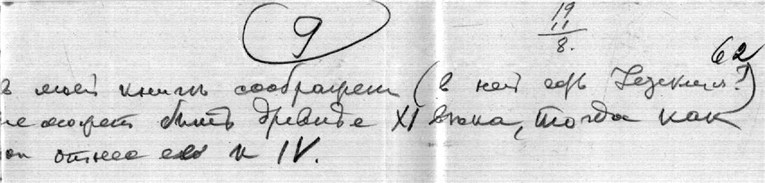 9
19
11
8.
62
моей книги соображения (в ней
не может быть древнее XI века, тогда как
он отнес его к IV.